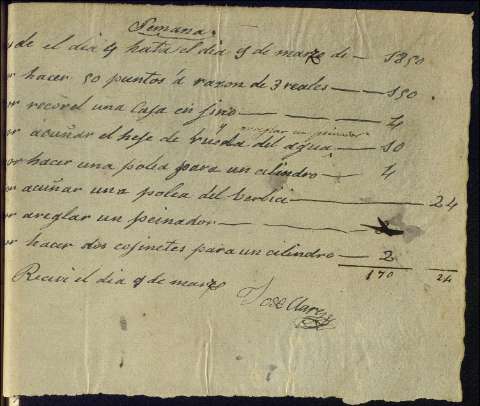 Semana
de el dia 4 hata el dia 9 de marzo de — 1850
or hacer 50 puntos á razon de 3 reales — 150
or recorel una Caja en fino — 4
y areglar un peinador
or acuñar el heje de rueda del agua — 10
or hacer una polea para un cilindro — 4
or acuñar una polea del berlici — 24
or areglar un peinador — 2
or hacer dos cojinetes para un cilindro — 2
170 24
Recivi el dia 9 de marzo
Jose Claret